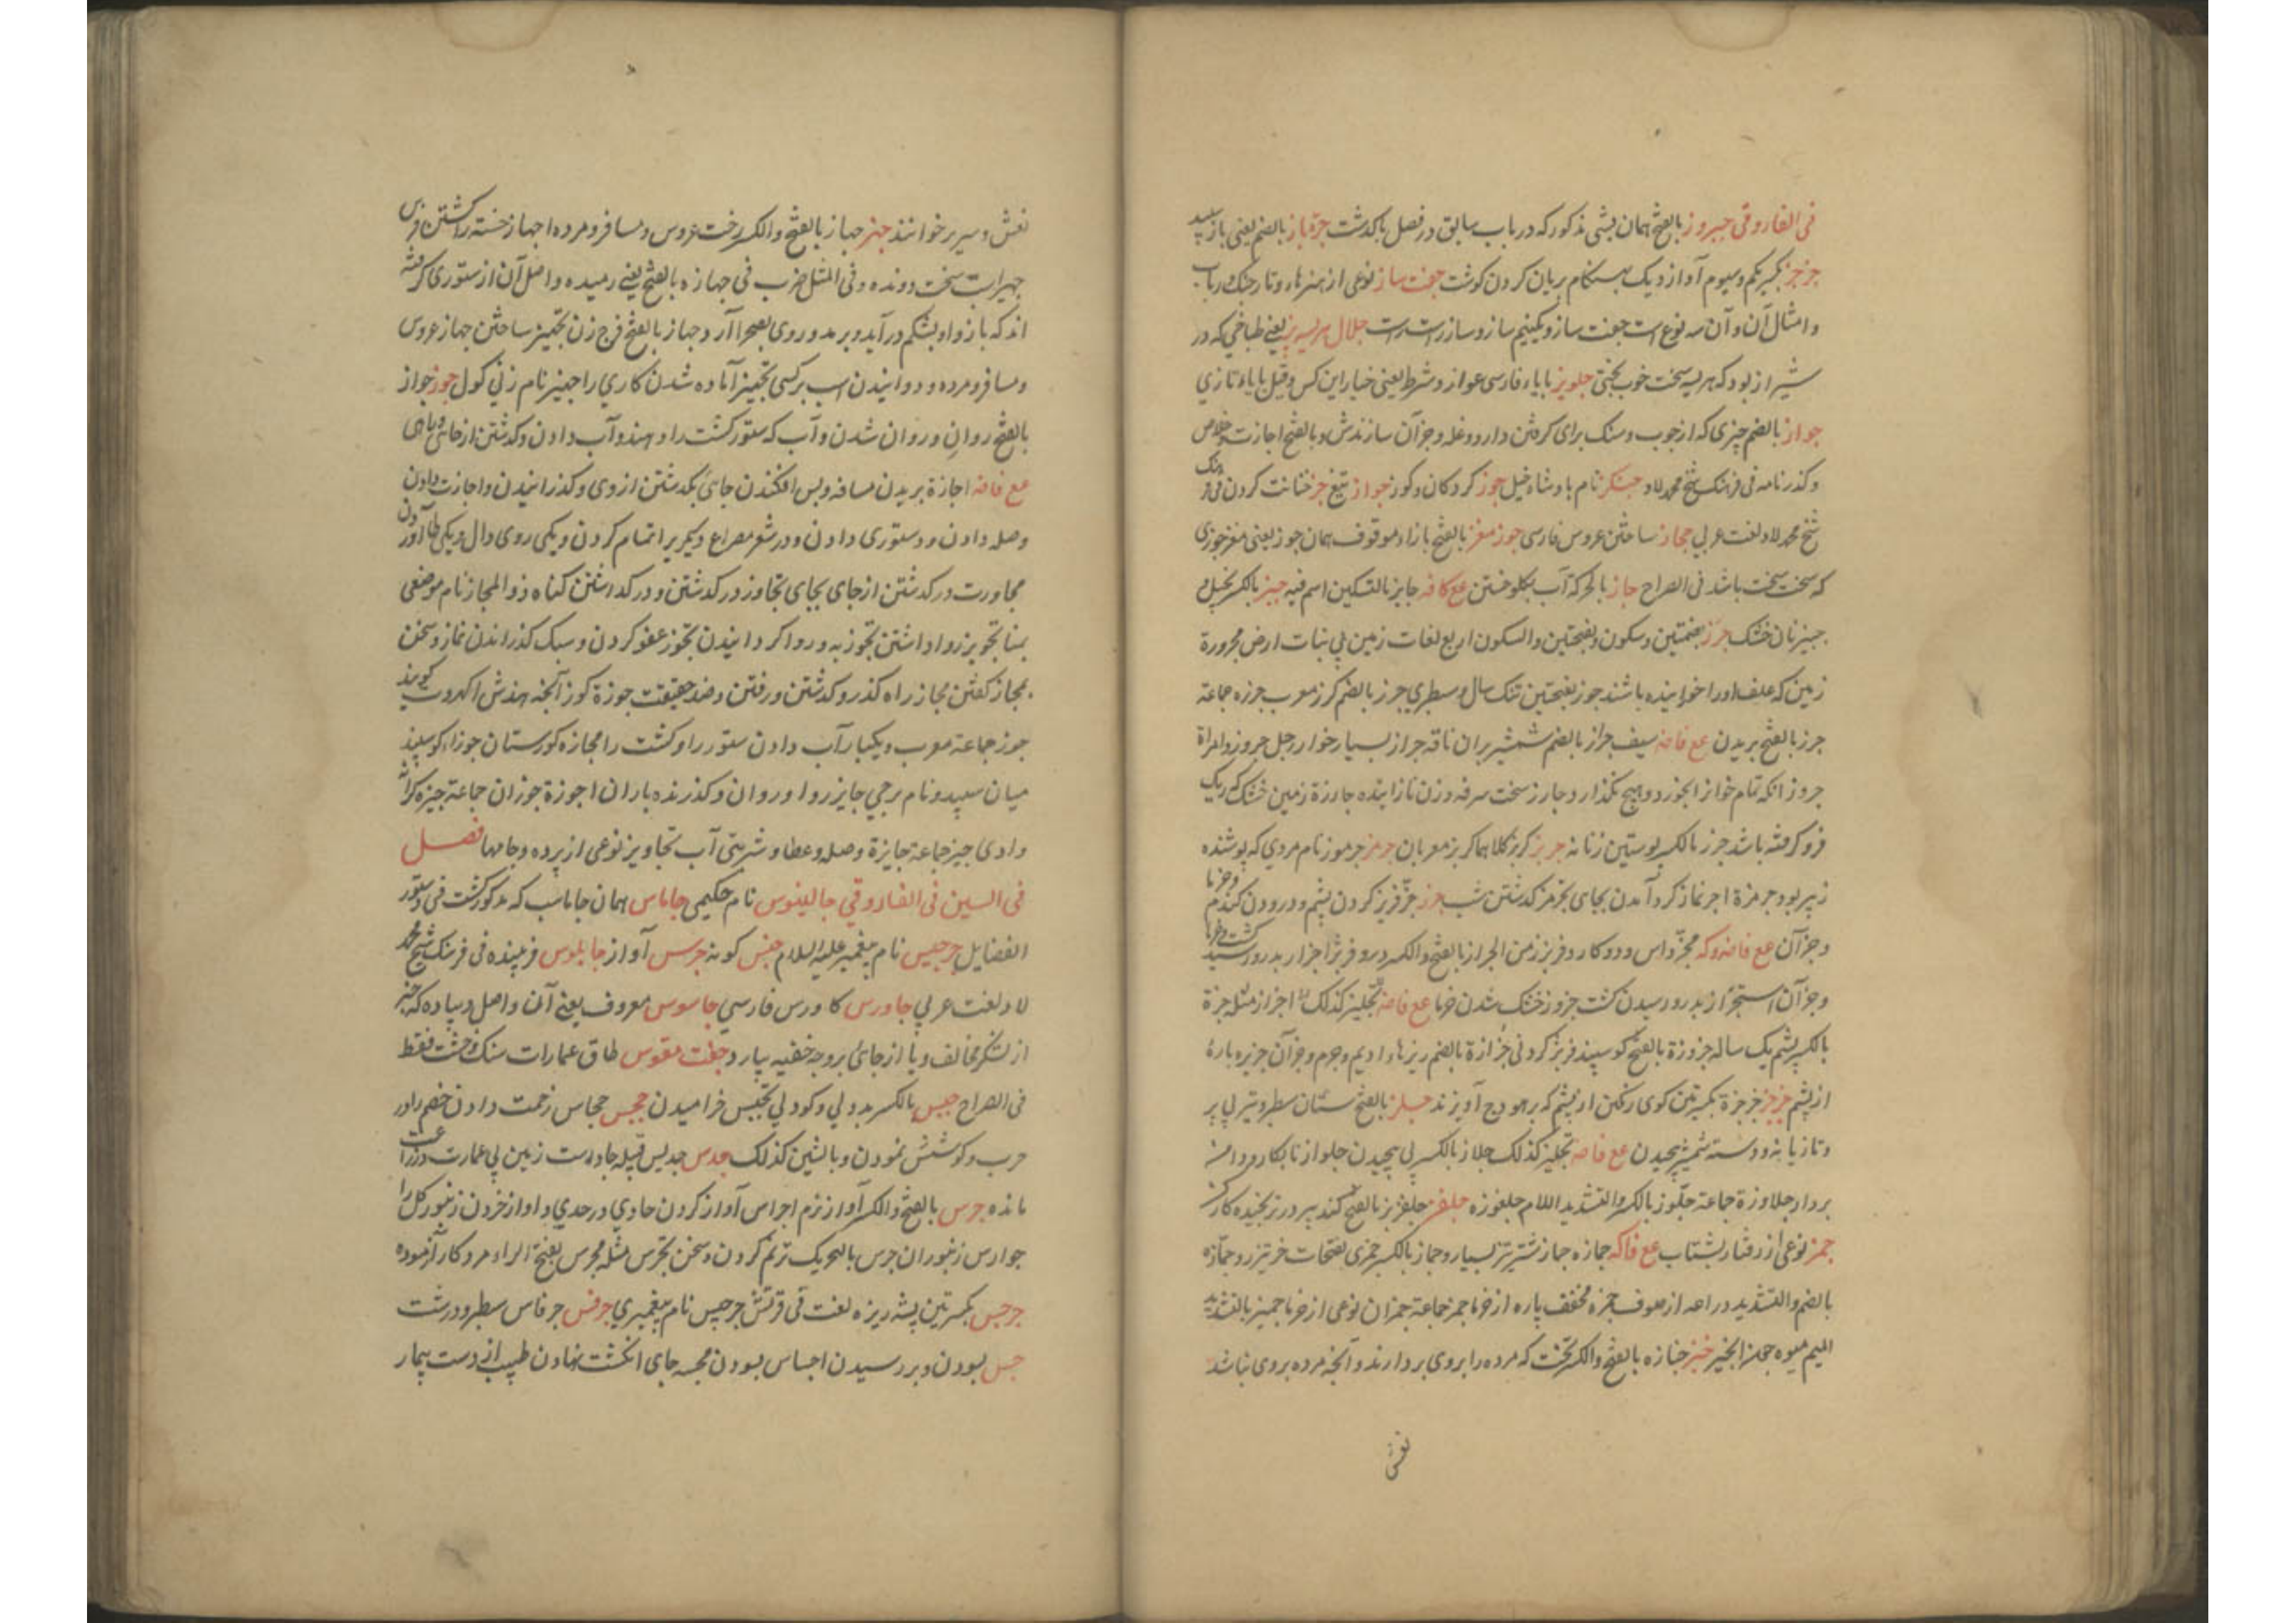 فی الفاروقی جیروز بالفتح همان بشی مذکور که در باب سابق در فصل با کذشت جرّه باز بالضم یعنی باز سپید
جزجز بکسر یکم و سیوم آواز دیک هنکام بریان کردن کوشت جفت ساز نوعی از هنرها و تار چنک و رباب
و امثال آن و آن سه نوع است جفت ساز و یکنیم ساز و ساز راست جلال هریسه پز یعنی طباخی که در
شیراز بود که هریسه سخت خوب پختی جلویز بایاء فارسی عوان و شرط یعنی خیار این کس و قیل بایاء تازی
جواز بالضم چیزی که از چوب و سنک برای کرفتن دارو و غله و جز آن سازندش و بالفتح اجازت و خلاص
و کذرنامه فی فرهنک شیخ محمد لاد جنکز نام بادشاه خیل جوز کردکان و کوز جواز تیغ جز خیانت کردن
شیخ محمد لاد لغت عربی جهاز ساختن عروس فارسی جوز مغز بالفتح بازاء موقوف همان جوز یعنی مغز جوزی
که سخت سخت باشد فی الصراح جاز بالحرکة آب بکلو خستن مع کافه جایز بالتسکین اسم فیه جبز بالکسر بخیل و
جبیز نان خشک جرز بضمتین و سکون و بفتحتین والسکون اربع لغات زمین بی نبات ارض مجروزة
زمین که علف او را خوانیده باشند جرز بفتحتین تنک سال و سطبری جرز بالضم کرز معرب جرزه جماعة
جرز بالفتح بریدن مع فاضه سیف جراز بالضم شمشیر بران ناقه جراز بسیار خوار رجل جروز و امراة
جروز انکه تمام خوان بخورد و هیچ نکذارد و جارز سخت سرفه و زن نازاینده جارزة زمین خشک که ریک
فرو کرفته باشد جرز بالکسر پوستین زنانه جربز کربز کلاهما کربز معربان جرمز جرموز نام مردی که پوشنده
زبیر بود جرمزة اجرنماز کرد آمدن بجای تجرمز کذشتن شب جزز جزّ فریز کردن پشم و درودن کندم و خرما
و جز آن مع فاضه و که مجزّ داس و دو کارد فریز زمن الجزاز بالفتح والکسر درو فریز اجزاز بدرو رسیدن کشت و خرما
و جز آن استجزاز بدرو رسیدن کشت جزوز خشک شدن خرما مع فاضه تجلیز کذلک اجزاز مثله جزة
بالکسر پشم یک ساله جزوزة بالفتح کوسپند فریز کردنی جزازة بالضم ریزهاء ادیم و جرم و جز آن جزیزه بارۀ
از پشم جزجز جزجزة بکسرتین کوی رنکین از پشم که بر هودج آویزند جلز بالفتح سنان سطبر و تیر بی پر
و تازیانه و دسته شمشیر پیچیدن مع فاضه تجلیز کذلک جلاز بالکسر پی پیچیدن جلواز تابکار و دامنه
بردار جلاوزة جماعة جلّوز بالکسر والتشدید اللام جلغوزه جلفز جلفزیز بالفتح کنده پیر در ترنجیده کارکن
جمز نوعی از رفتار بشتاب مع فاکه جمازه جماز شتر تیز بسیار رو جماز بالکسر جمزی بفتحات خر تیز رو جمّازه
بالضم والتشدید دراعه از صوف جمزه مخفف پاره از خرما جمز جماعة جمزان نوعی از خرما جمیز بالتشدید
المیم میوه جمز انجیر جنز جنازه بالفتح والکسر تخت که مرده را بروی بردارند و آنچه مرده بروی نباشد
نعش
نعش و سریر خوانند جهز جهاز بالفتح والکسر رخت عروس و مسافر و مرده اجهاز خسته را کشتن فرس
جهیز اسب سخت دونده و فی المثل ضرب فی جهازه بالفتح یعنی رمیده و اصل آن از ستوری کرفته
اند که باز واو بشکم در آید و برمد و روی بصحرا آرد جهاز بالفتح فرج زن تجهیز ساختن جهاز عروس
و مسافر و مرده و دوانیدن اسب بر کسی تجهیز آماده شدن کاری را جهیز نام زنی کول جوز جواز
بالفتح روان و روان شدن و آب که ستور کشت را دهند و آب دادن و کذشتن از جائی
مع فاضه اجازة بریدن مسافه و پس افکندن جای بکذشتن از وی و کذرانیدن و اجازت دادن
وصله دادن و دستوری دادن و در شعر مصراع دیکر براتمام کردن و یکی روی دال و یکی طا آوردن
مجاوزت در کذشتن از جای بجای تجاوز در کذشتن و در کذاشتن کناه ذوالمجاز نام موضعی
بمنا تجویز روا داشتن تجوز به و روا کردانیدن تجوز عفو کردن و سبک کذراندن نماز و سخن
بمجاز کفتن مجاز راه کذر و کذشتن و رفتن و ضد حقیقت جوزة کوز آنچه هندش اکهروت کویند
جوز جماعة معرب و یکبار آب دادن ستور را و کشت را مجازه کوزستان جوزاء کوسپند
میان سپید و نام برجی جایز روا و روان و کذرنده باران اجوزة جوزان جماعة جیزه کرانه
وادی جیز جماعة جایزة وصله و عطا و شربتی آب تجاویز نوعی از برده و جامها فصل
فی السین فی الفاروقی جالینوس نام حکیمی جاماس همان جاماسب که مذکور کشت فی دستور
الفضایل جرجیس نام پیغمبر علیه السلام جنس کونه جرس آواز جابلوس فریبنده فی فرهنک شیخ محمد
لاد لغت عربی جاورس کاورس فارسی جاسوس معروف یعنی آن واصل دیباده که خبر
از لشکر مخالف و یا از جائ بروجه خفیه بیارد جفت مقوس طاق عمارات سنک و خشت فقط
فی الصراح جبس بالکسر بددلی و کودلی تجبس خرامیدن جحس جحاس زحمت دادن خصم را در
حرب و کوشش نمودن و بالشین کذلک جدس جدیس قبیله جادست زمین بی عمارت و زراعت
مانده جرس بالفتح والکسر آواز نرم اجراس آواز کردن حادی در حدی و آواز خردن زنبور کل را
جوارس زنبوران جرس بالتحریک ترنم کردن و سخن تجرس مثله مجرس بفتح الراء مرد کار آزموده
جرجس بکسرتین پشه ریزه لغت فی قرقس جرجیس نام پیغمبری جرفس جرفاس سطبر و درشت
جسّ بسودن و بررسیدن اجساس بسودن مجسه جای انکشت نهادن طبیب از دست بیمار